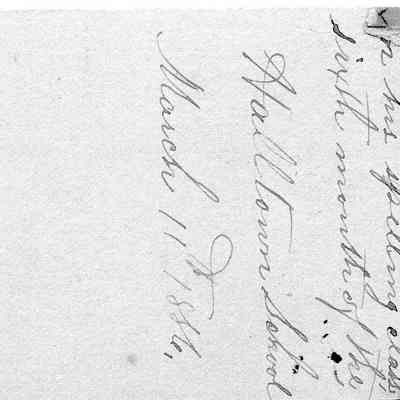 in his spelling class
sixth month of the
Halltown School
March 11th 1886,